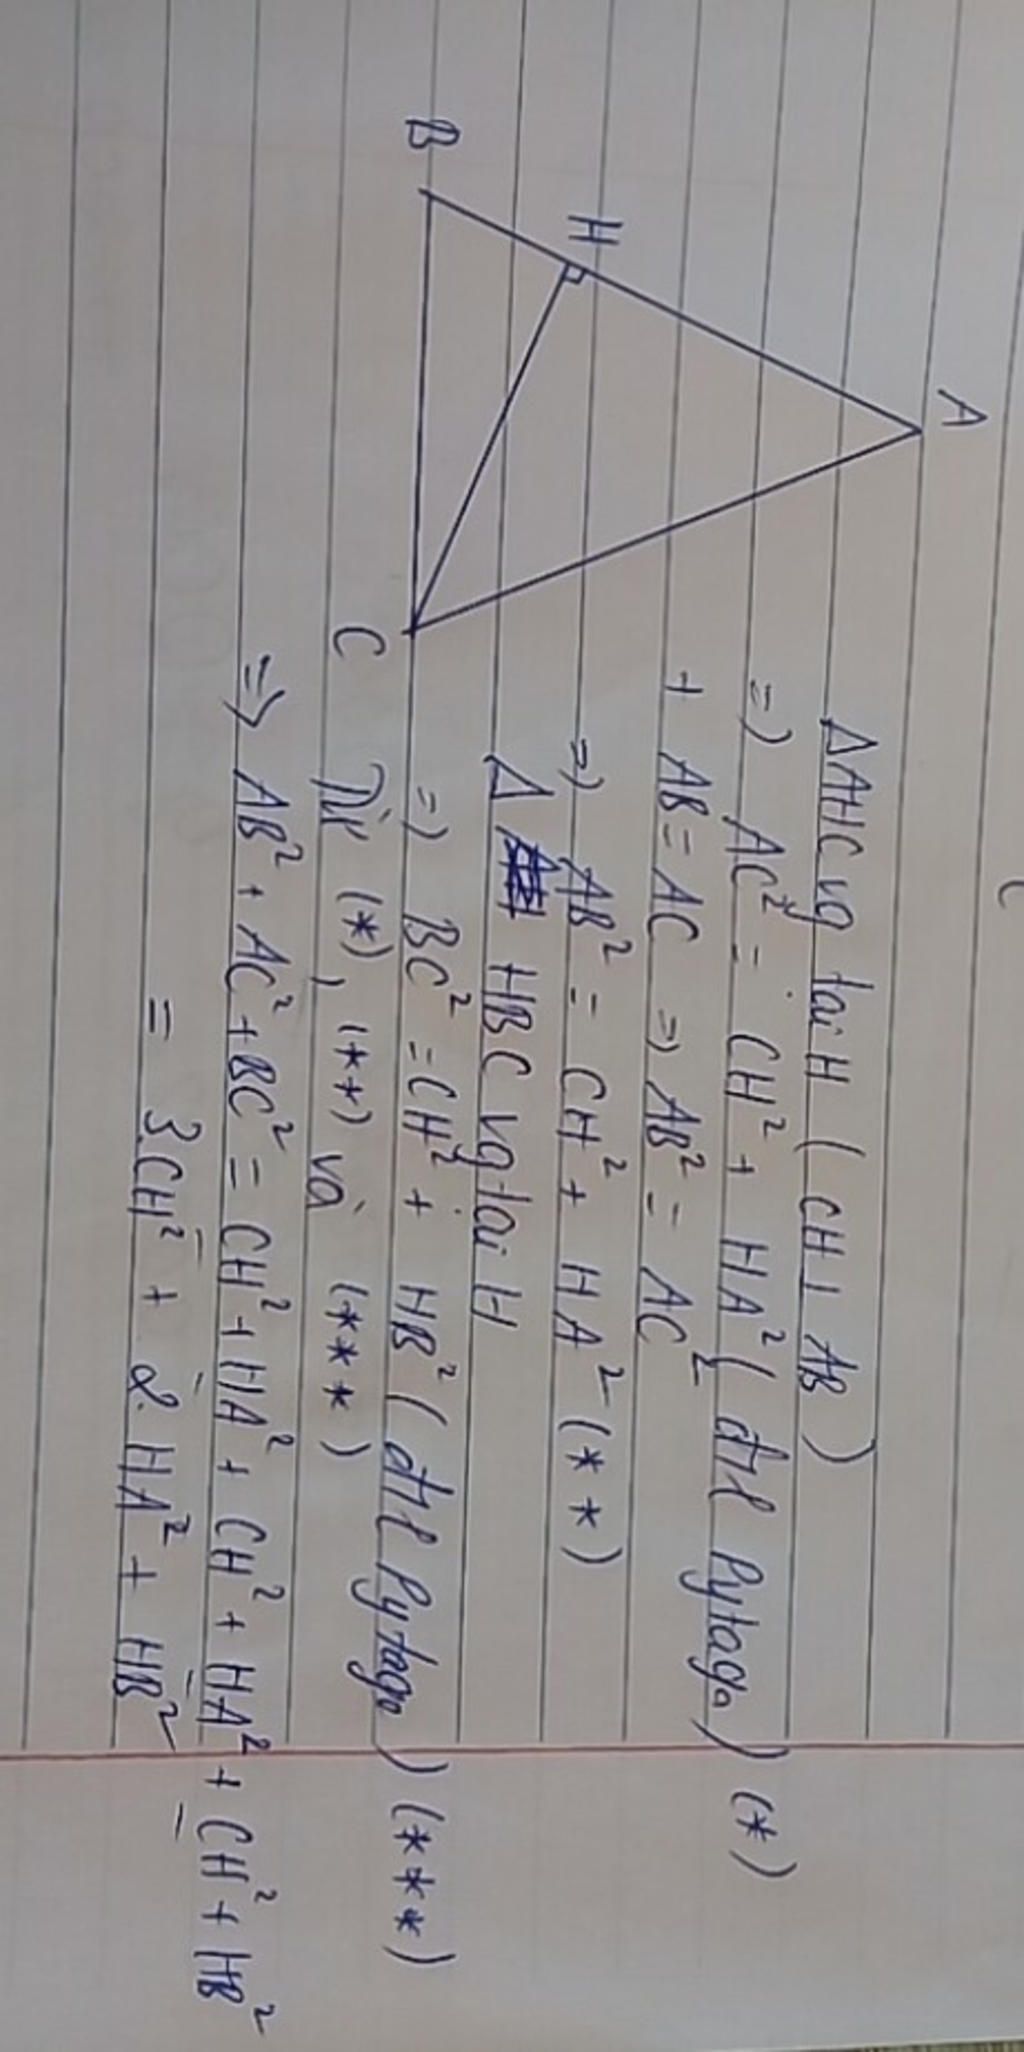 A
H
B
C
ΔAHC vg tại H ( CH ⊥ AB )
=) AC² = CH² + HA² ( đrl Pytago ) (*)
+ AB = AC => AB² = AC²
=) AB² = CH² + HA² (**)
Δ HBC vg tại H
=) BC² = CH² + HB² ( đrl Pytago ) (***)
Từ (*), (**) và (***)
=> AB² + AC² + BC² = CH² + HA² + CH² + HA² + CH² + HB²
= 3.CH² + 2.HA² + HB²